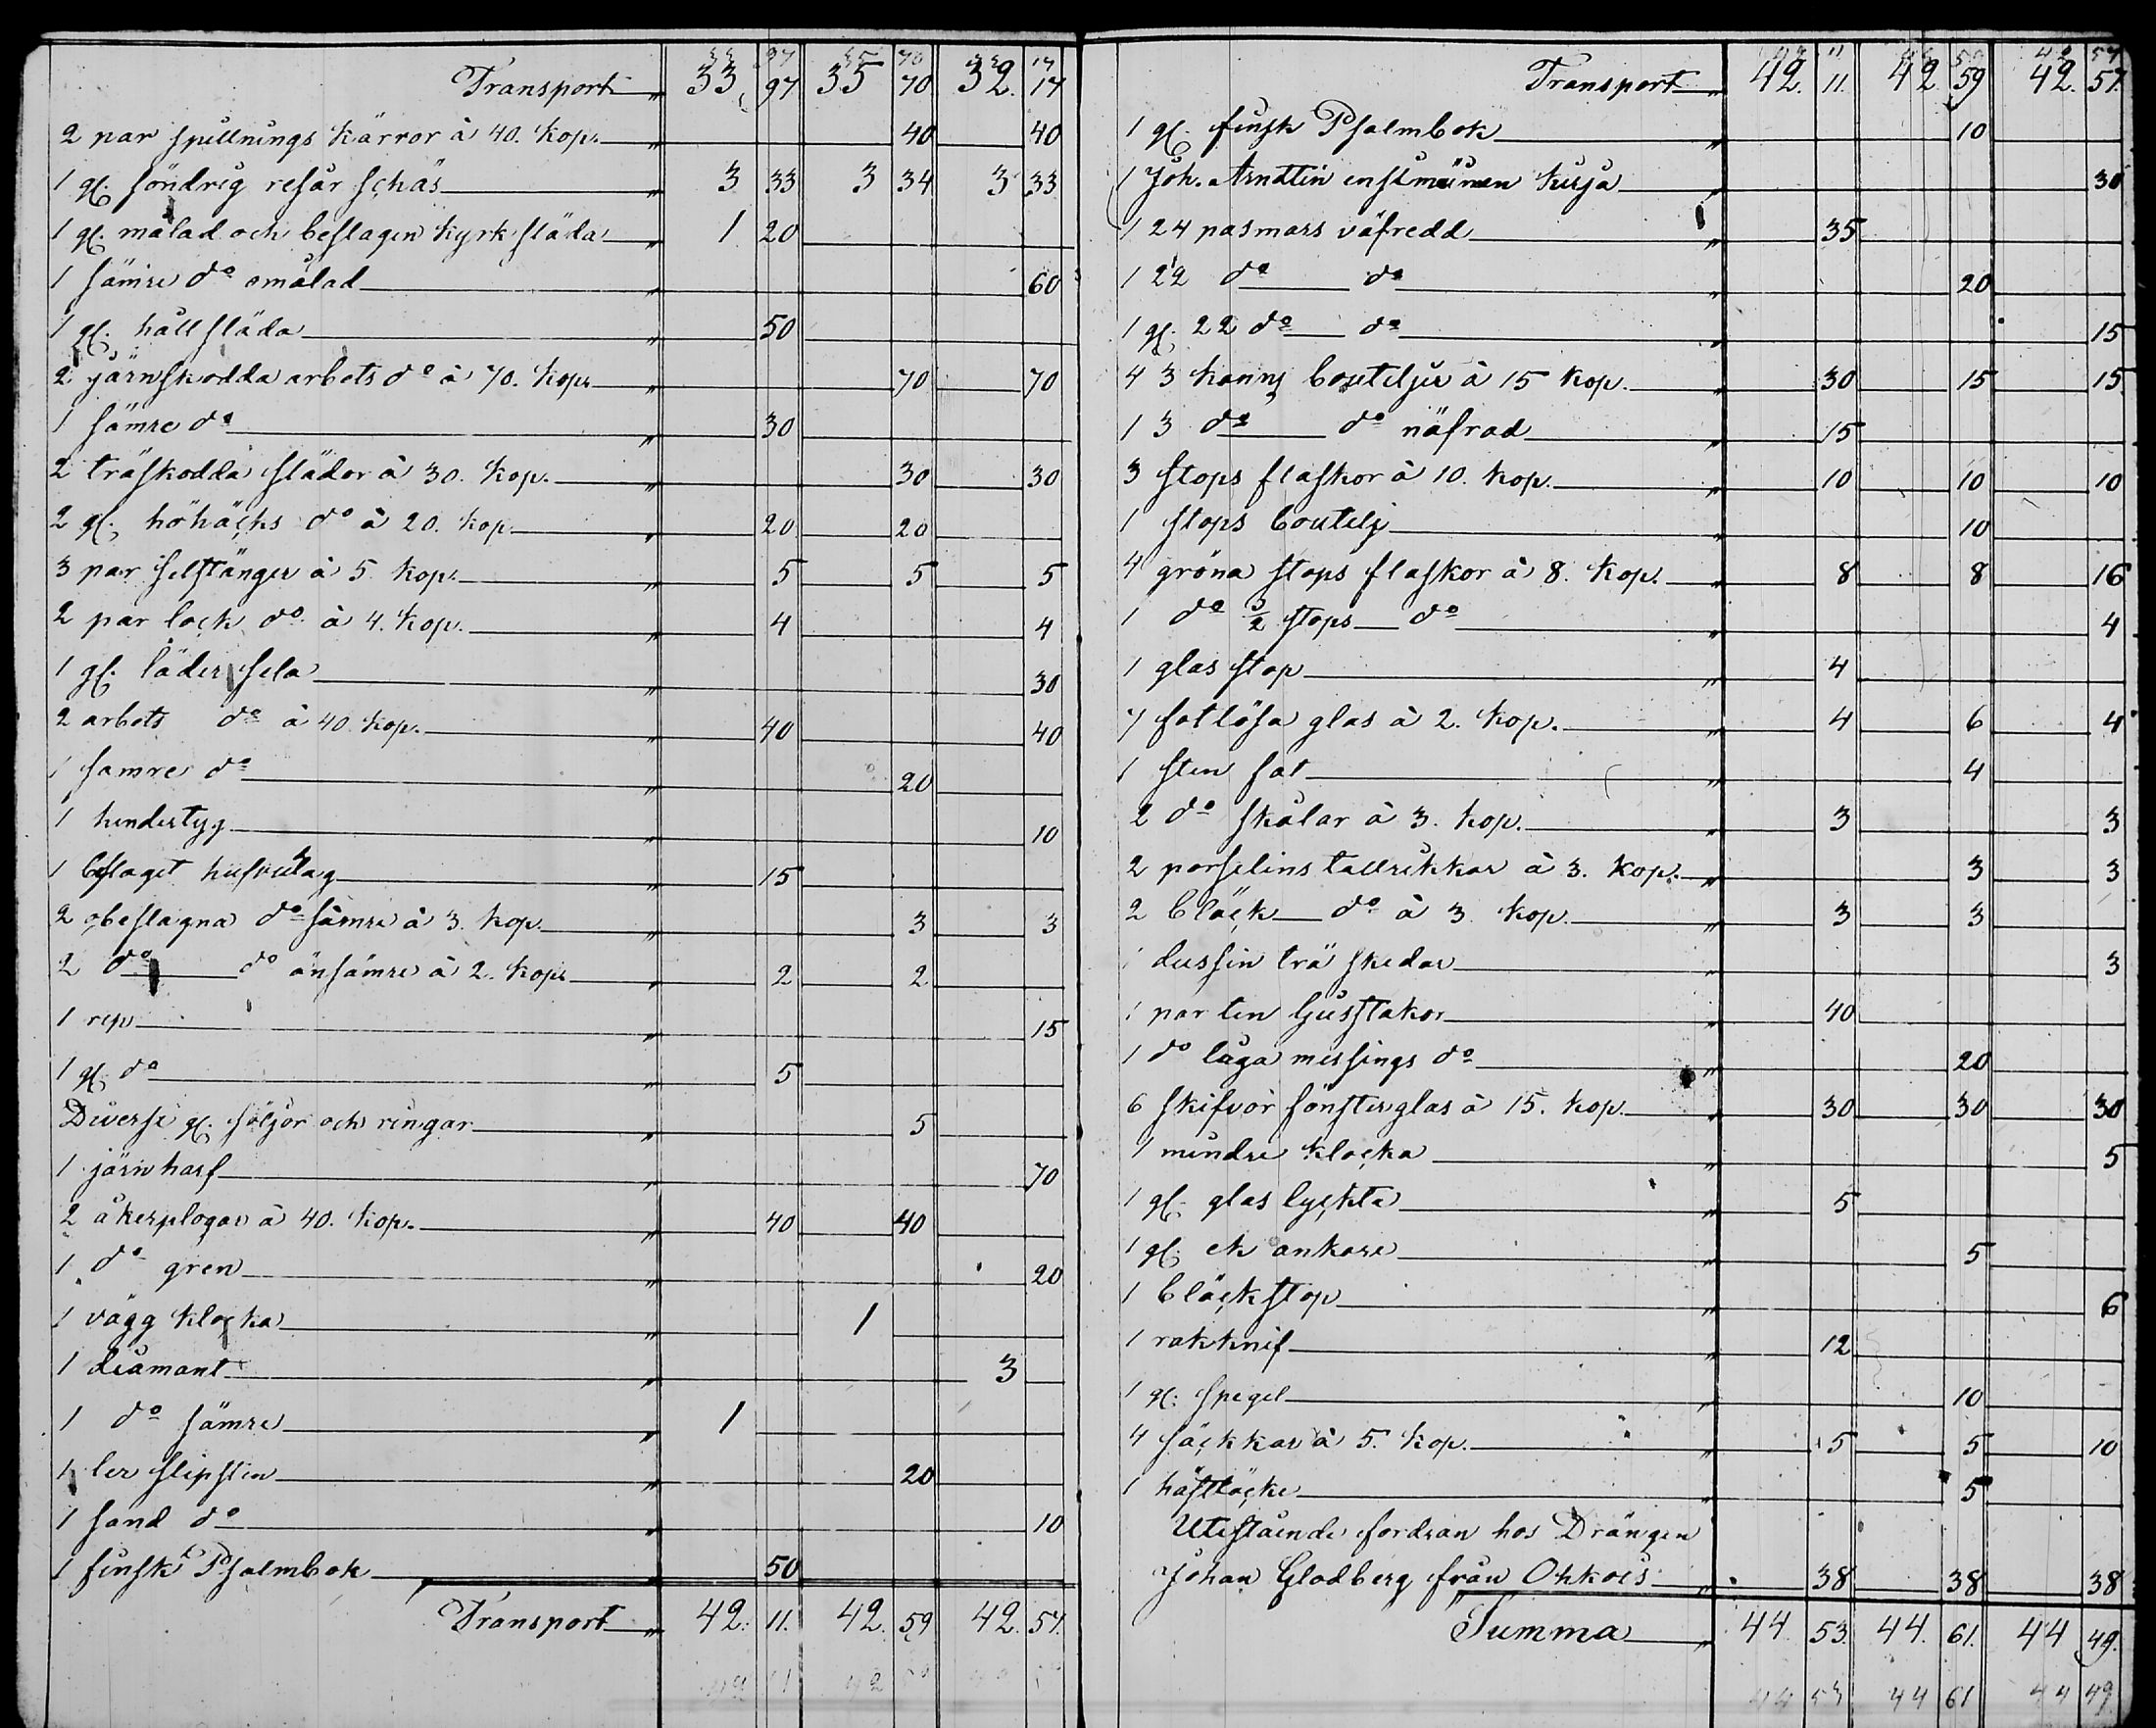 33 97 35 70 32 17
Transport „ 33 97 35 70 32. 17
2 par spillnings kärror à 40. kop. „ 40 40
1 gl. söndrig resår schäs „ 3 33 3 34 3 33
1 gl. målad och beslagen kyrk släda „ 1 20
1 sämre do omålad „ 60
1 gl. håll släda „ 50
2 järnskodda arbets do à 70. kop. „ 70 70
1 sämre do „ 30
2 träskodda slädor à 30. kop. „ 30 30
2 gl. höhäcks do à 20. kop „ 20 20
3 par selstänger à 5 kop. „ 5 5 5
2 par lock do à 4. kop. „ 4 4
1 gl. läder sela „ 30
2 arbets do à 40. kop. „ 40 40
1 samre do „ 20
1 hindertyg „ 10
1 beslaget hufvulag „ 15
2 obeslagna do sämre à 3. kop. „ 3 3
2 do do än sämre à 2. kop. „ 2 2
1 rep „ 15
1 gl. do „ 5
Diverse gl. söljor och ringar „ 5
1 järn harf „ 70
2 åkerplogar à 40. kop. „ 40 40
1 do gren „ 20
1 vägg klocka „ 1
1 diamant „ 3
1 do sämre „ 1
1 ler slipsten „ 20
1 sand do „ 10
1 finsk Psalmbok „ 50
Transport „ 42. 11. 42. 59 42. 57.
42 11 42 59
42 11 42 59 42 57
Transport „ 42. 11. 42 59 42. 57.
1 gl. finsk Psalmbok „ 10
1 Joh. Arndtin ensimäinen kirja „ 30
1 24 pasmars väfredd „ 35
1 22 do do „ 20
1 gl. 22 do do „ 15
4 3 kanns bouteljer à 15 kop. „ 30 15 15
1 3 do do näfrad „ 15
3 stops flaskor à 10. kop. „ 10 10 10
1 stops boutelj „ 10
4 gröna stops flaskor à 8. kop. „ 8 8 16
1 do 3/2 stops do „ 4
1 glas stop „ 4
7 fotlösa glas à 2. kop. „ 4 6 4
1 sten fat „ 4
2 do skålar à 3. kop. „ 3 3
2 porselins tallrikkar à 3. kop. „ 3 3
2 bläck do à 3 kop. „ 3 3
1 dussin trä skedar „ 3
1 par ten ljusstakor „ 40
1 do låga messings do „ 20
6 skifvor fönsterglas à 15. kop. „ 30 30 30
1 mindre klocka „ 5
1 gl. glas lyckta „ 5
1 gl. ek ankare „ 5
1 bläckstop „ 6
1 rakknif „ 12
1 gl. spegel „ 10
4 säckkar à 5. kop. „ 5 5 10
1 hästtäcke „ 5
Utestående fordran hos Drängen
Johan Glodberg från Ohkois „ 38 38 38
Summa „ 44 53. 44. 61. 44 49.
44 53 44 61 44 49